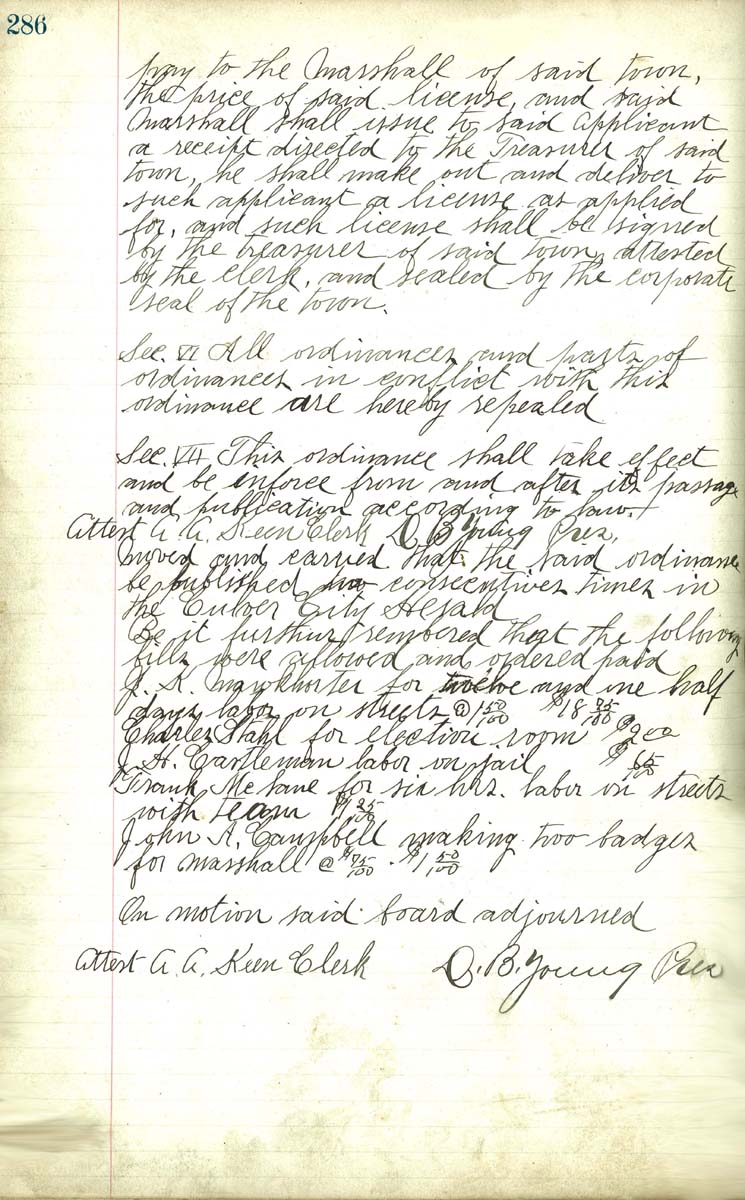 286
pay to the Marshall of said town,
the price of said license, and said
Marshall shall issue to said applicant
a receipt directed to the Treasurer of said
town, he shall make out and deliver to
such applicant a license as applied
for, and such license shall be signed
by the treasurer of said town, attested
by the clerk, and sealed by the corporate
seal of the town.
Sec. VI All ordinances and parts of
ordinances in conflict with this
ordinance are hereby repealed
Sec. VII This ordinance shall take effect
and be inforce from and after its passage
and publication according to law.
Attest A. A. Keen Clerk O B Young Pres.
moved and carried that the said ordinance
be published two consecutives times in
the Culver City Herald
Be it further remembered that the following
bills were allowed and ordered paid
J. K. Mawhorter for twelve and one half
days labor on streets @ 1 50/100 $18 75/100
Charles Stahl for election room $2 00
J. H. Castleman labor on jail $ 65/100
Frank McLane for six hrs. labor on streets
with team $1 25/100
John A. Campbell making two badges
for marshall @ $ 75/100 - $1 50/100
On motion said board adjourned
Attest A. A. Keen Clerk O. B. Young Pres